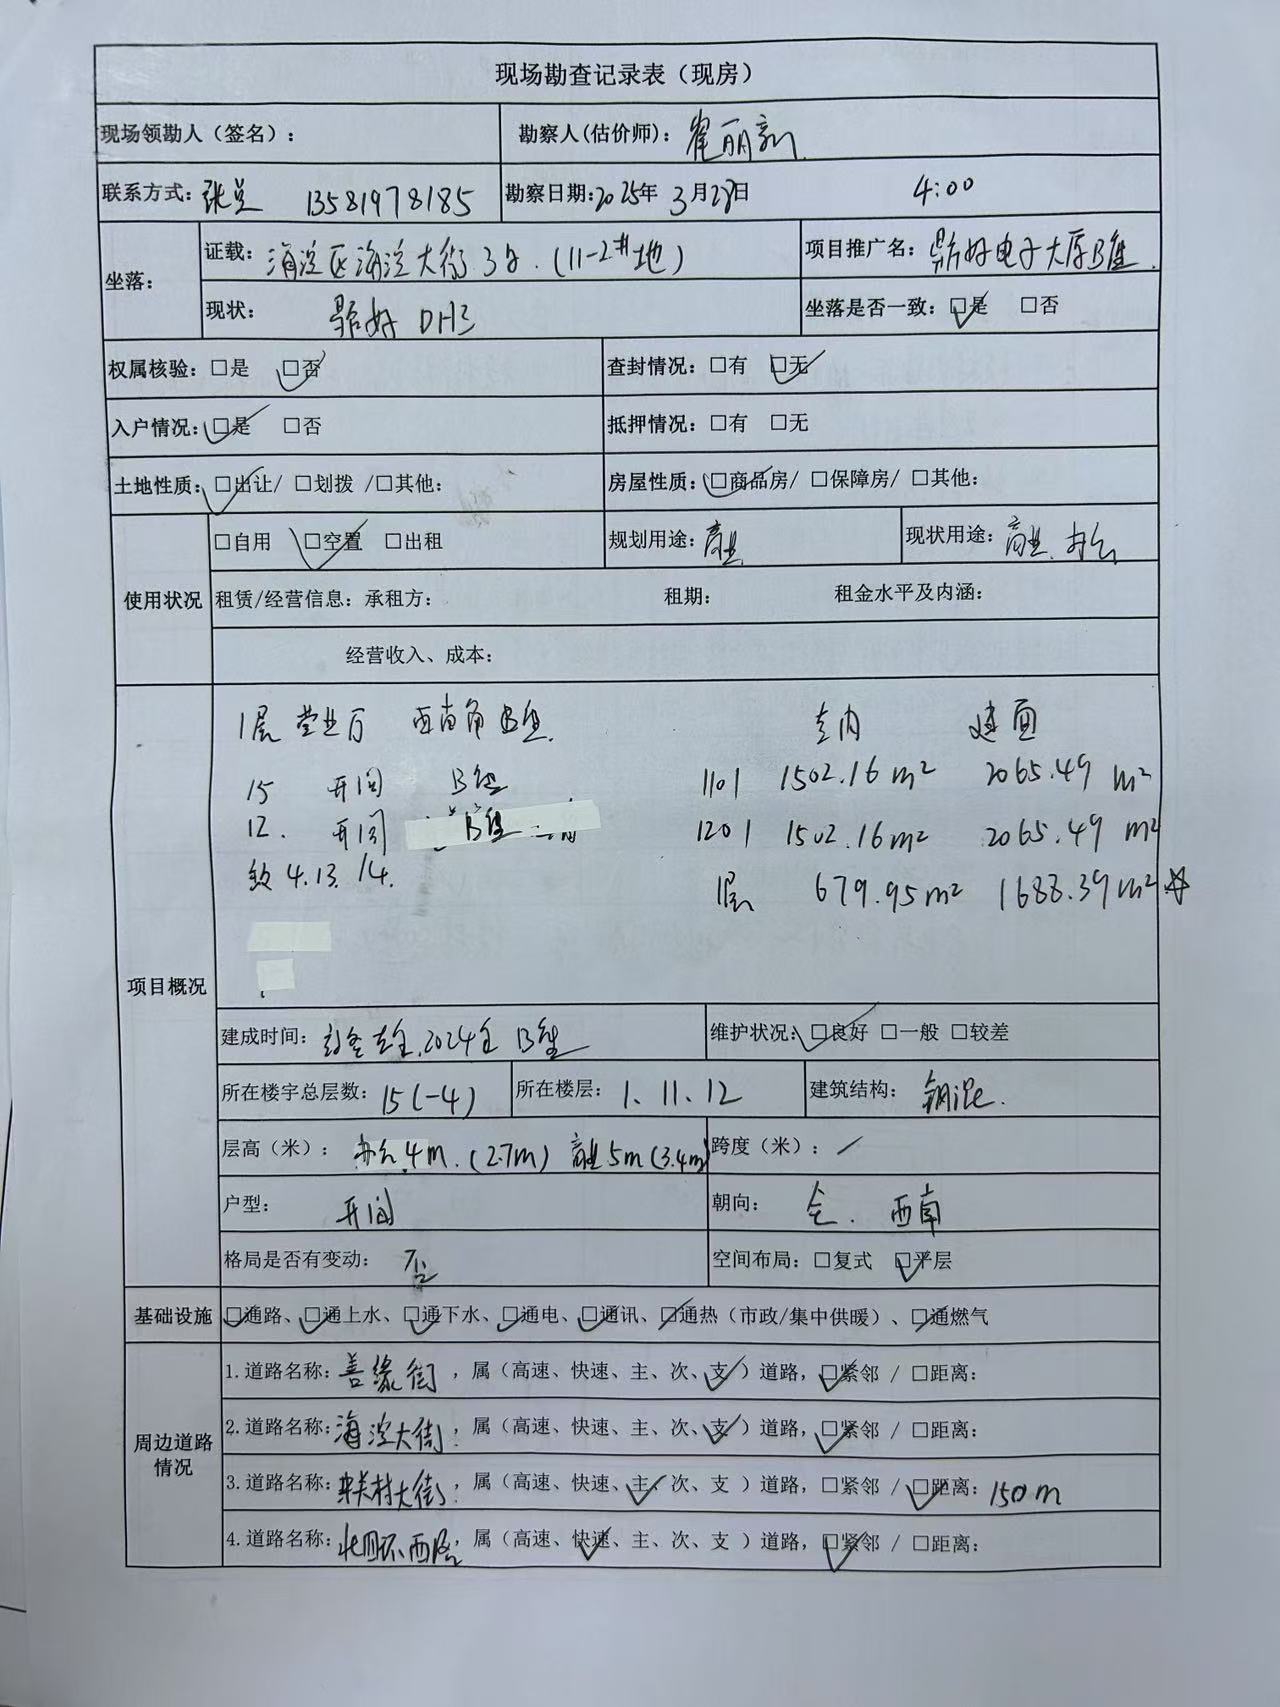 现场勘查记录表（现房）
现场领勘人（签名）： 勘察人(估价师)： 崔丽新
联系方式：张总 13581978185 勘察日期:2025年 3月28日 4:00
坐落： 证载： 海淀区海淀大街3号.(11-2#地) 项目推广名：鼎好电子大厦B座.
现状： 鼎好 DH3 坐落是否一致：□是 □否
权属核验：□是 □否 查封情况：□有 □无
入户情况：□是 □否 抵押情况：□有 □无
土地性质：□出让/ □划拨 /□其他： 房屋性质：□商品房/ □保障房/ □其他：
使用状况 □自用 □空置 □出租 规划用途：商业 现状用途：商业、办公
租赁/经营信息：承租方： 租期： 租金水平及内涵：
经营收入、成本：
项目概况
1层 营业厅 西南角 B座. 套内 建面
15 开间 B座 1101 1502.16m² 2065.49 m²
12. 开间 B座 1201 1502.16m² 2065.49 m²
缺 4.13.14. 1层 679.95m² 1688.39m²
建成时间： 2024年 B座 维护状况：□良好 □一般 □较差
所在楼宇总层数：15(-4) 所在楼层：1、11、12 建筑结构： 钢混.
层高（米）： 办公4m.(2.7m) 商业5m(3.4m) 跨度（米）：/
户型： 开间 朝向： 全. 西南
格局是否有变动： 否 空间布局：□复式 □平层
基础设施 □通路、□通上水、□通下水、□通电、□通讯、□通热（市政/集中供暖）、□通燃气
周边道路情况
1.道路名称：善缘街，属（高速、快速、主、次、支）道路，□紧邻 / □距离：
2.道路名称：海淀大街，属（高速、快速、主、次、支）道路，□紧邻 / □距离：
3.道路名称：中关村大街，属（高速、快速、主、次、支 ）道路，□紧邻 / □距离：150m
4.道路名称：北四环西路，属（高速、快速、主、次、支 ）道路，□紧邻 / □距离：